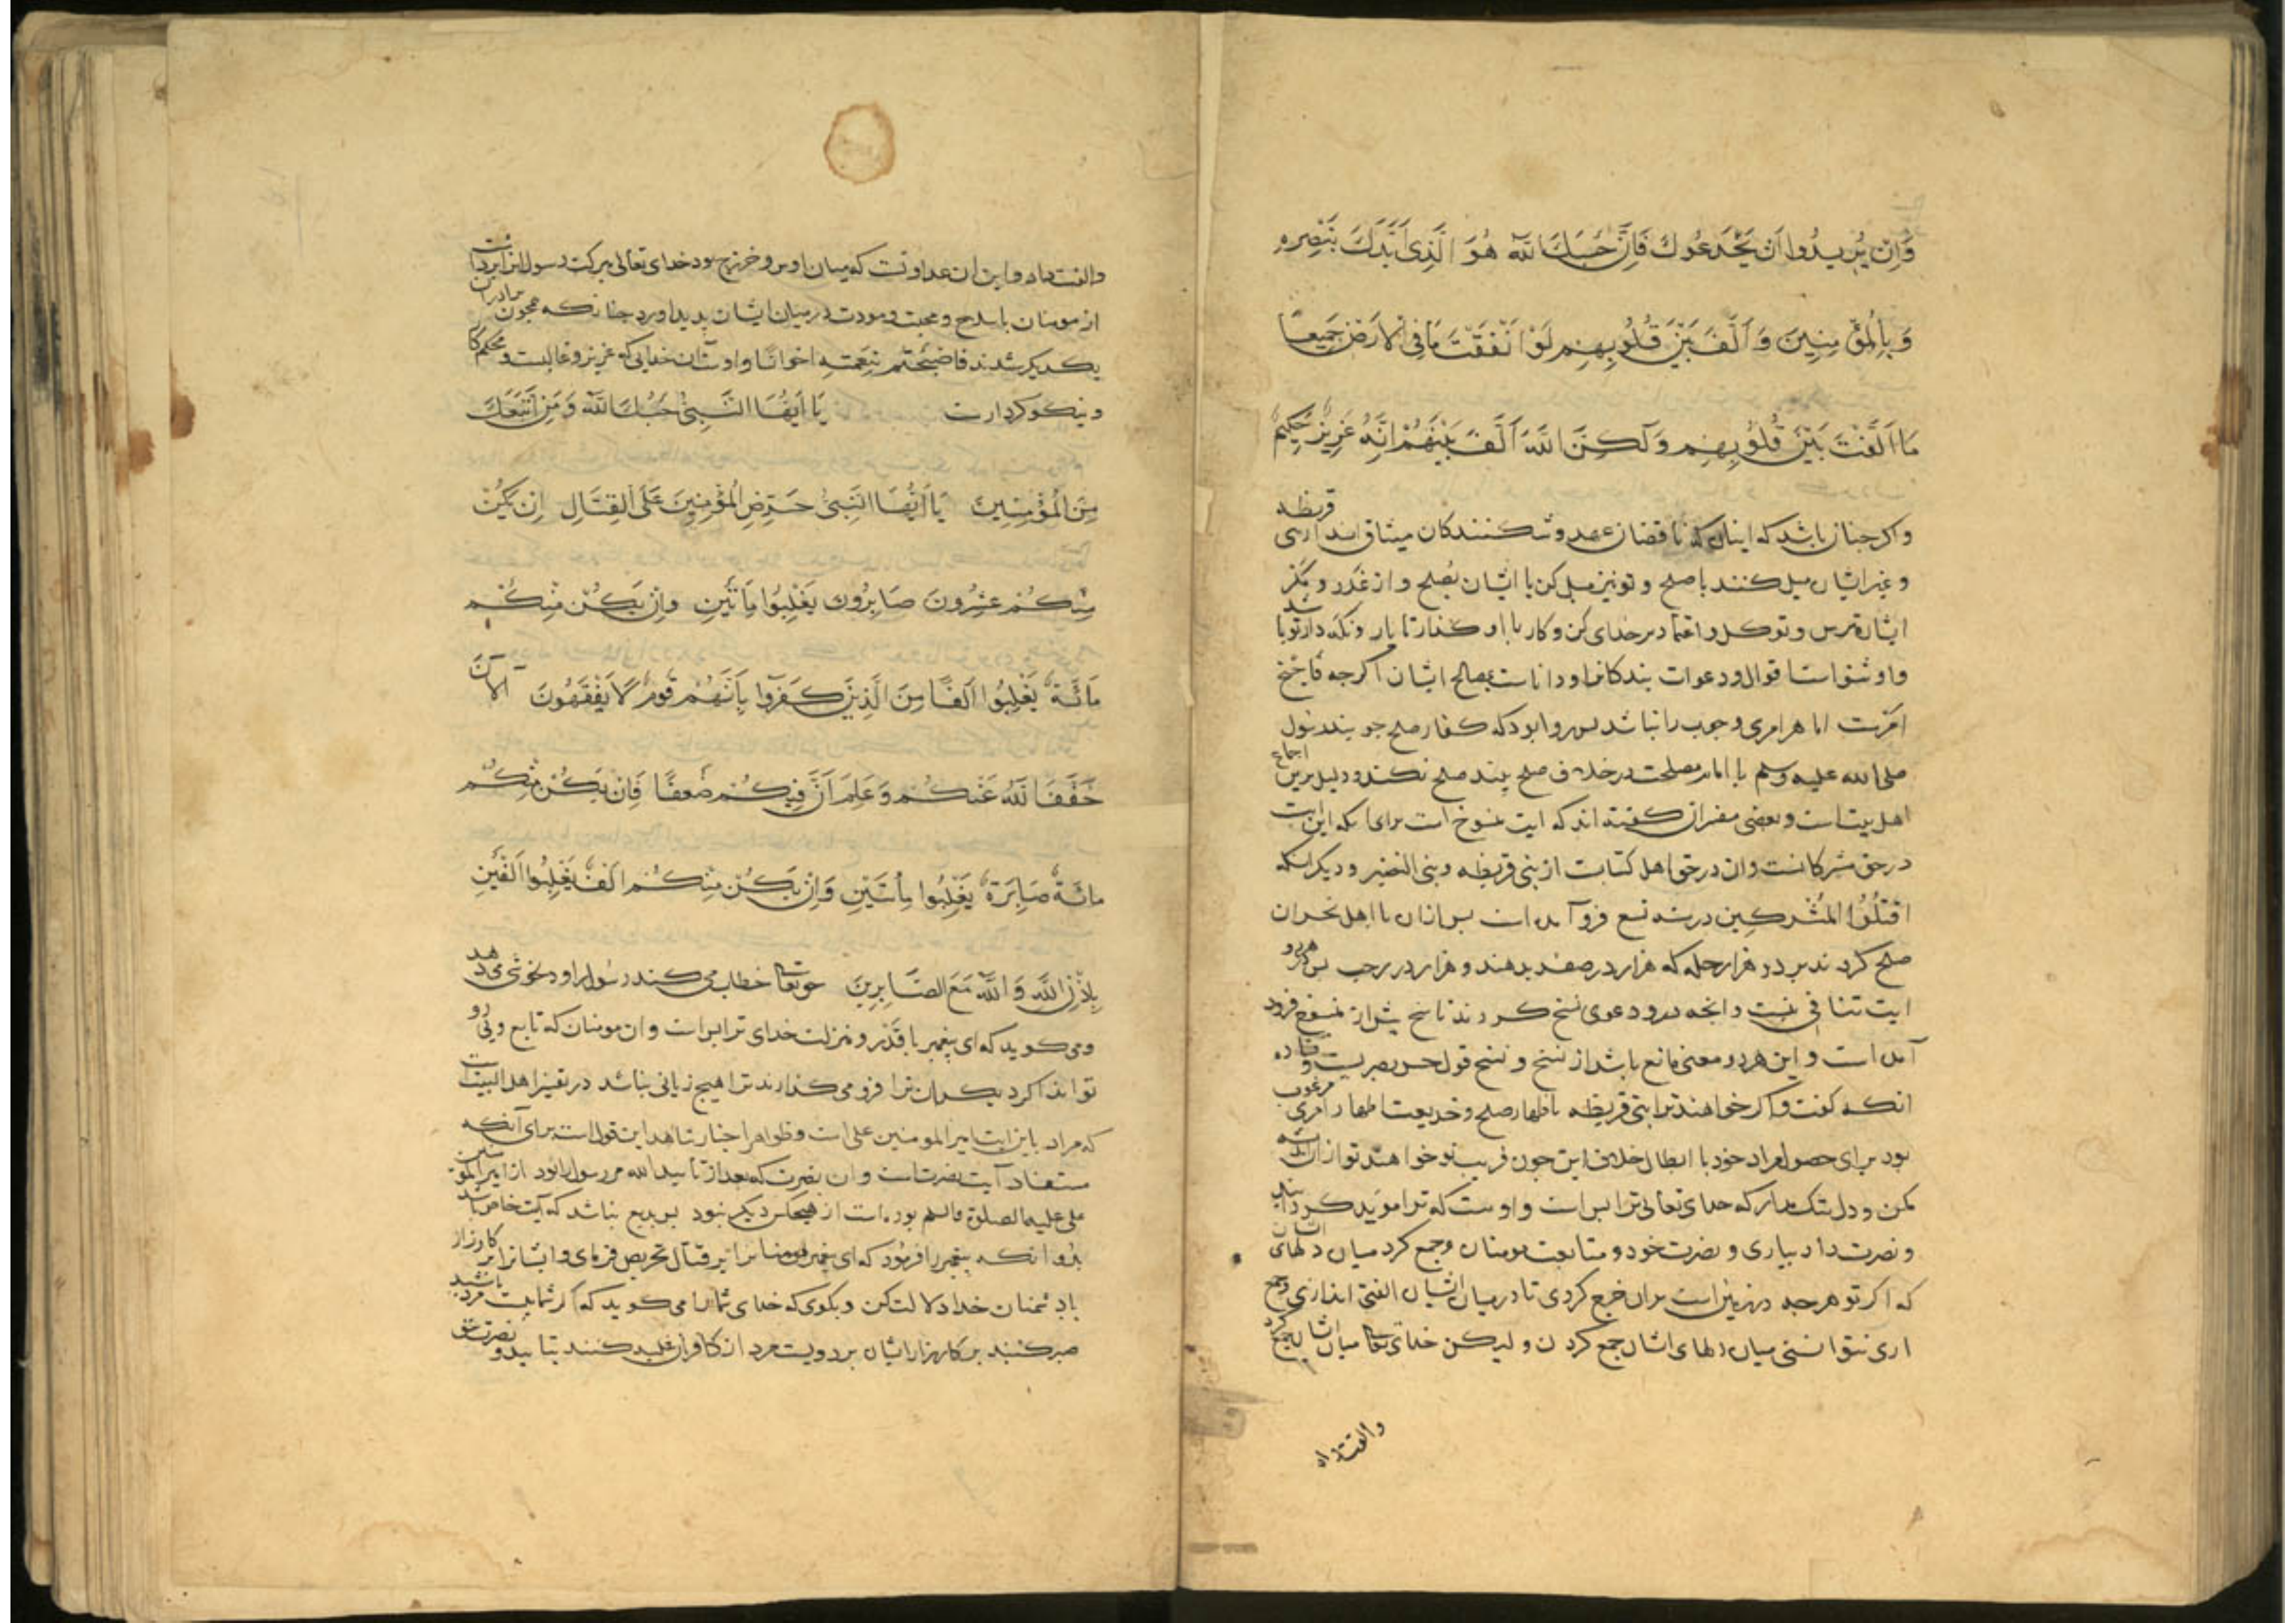 وَاِن يُرِيدُوا اَن يَخْدَعُوكَ فَاِنَّ حَسْبَكَ اللّه هُوَ الَّذِى اَيَّدَكَ بِنَصْرِه
وَبِالْمُؤْمِنِينَ وَاَلَّفَ بَيْنَ قُلُوبِهِم لَوْ اَنْفَقْتَ مَا فِى الْاَرْضِ جَمِيعًا
مَا اَلَّفْتَ بَيْنَ قُلُوبِهِم وَلَكِنَّ اللَّهَ اَلَّفَ بَيْنَهُمْ اِنَّهُ عَزِيزٌ حَكِيمٌ
واكر جنان باشد كه اينان كه ناقضان عهد و شكنندكان ميثاق اند از بنى قريظه
و غير ايشان ميل كنند با صلح و تو نيز ميل كن با ايشان بصلح و از غدر و مكر
ايشان مترس و توكل و اعتماد بر خداى كن و كار با او كذار تا يار و نكه دار تو باشد
و او شنواست اقوال و دعوات بندكانرا و داناست بمصالح ايشان اكرجه فاجنح
امرست اما هر امرى وجوب را نباشد بس روا بود كه كفار صلح جويند رسول
صلى الله عليه وسلم با امام مصلحت در خلاف صلح بيند صلح نكند و دليل برين اجماع
اهل بيت است و بعضى مفسران كفته اند كه ايت منسوخ است براى انكه اين ايت
در حق مشركانست وان در حق اهل كتابست از بنى قريظه و بنى النضير و ديكر انكه
اقتلوا المشركين در سنه تسع فرو آمده است بس ازان با اهل نجران
صلح كردند بر دو هزار حله كه هزار در صفر بدهند و هزار در رجب بس در هر دو
ايت تنافى نيست و انجه درو دعوى نسخ كردند ناسخ بيش از منسوخ فرود
آمده است و اين هر دو معنى مانع باشد از نسخ و نسخ قول حسن بصريست و قتاده
انكه كفت و اكر خواهند ترا بنى قريظه باظهار صلح و خديعت اظهار امرى مرغوب
بود براى حصول مراد خود با ابطال خلاف اين جون فريب تو خواهند تو ازان انديشه
مكن و دل تنك مدار كه خداى تعالى ترا بس است و اوست كه ترا مويد كردانيد
و نصرت داد بيارى و نصرت خود و متابعت مومنان و جمع كرد ميان دلهاى ايشان
كه اكر تو هرجه در زمين است بران خرج كردى تا در ميان ايشان الفتى اندازى و جمع
ارى نتوانستى ميان دلهاى ايشان جمع كردن و ليكن خداى تعا ميان ايشان جمع كرد
والفت داد
والفت داد و اين ان عداوتست كه ميان اوس و خزرج بود خداى تعالى ببركت رسول انرا برداشت
از مومنان با صلاح و محبت و مودت در ميان ايشان بديد اورد جنانكه همجون برادران
يكديكر شدند فاصبحتم بنعمته اخوانا و اوست آن خدايى كه عزيز و غالبست و محكم كار
و نيكو كردارست يَا اَيُّهَا النَّبِىُّ حَسْبُكَ اللّه وَمَنِ اتَّبَعَكَ
مِنَ الْمُؤْمِنِينَ يَا اَيُّهَا النَّبِىُّ حَرِّضِ الْمُؤْمِنِينَ عَلَى الْقِتَالِ اِن يَكُنْ
مِنْكُمْ عِشْرُونَ صَابِرُونَ يَغْلِبُوا مِاَئتَيْنِ وَاِنْ يَكُنْ مِنْكُمْ
مِائَةٌ يَغْلِبُوا اَلْفًا مِنَ الَّذِينَ كَفَرُوا بِاَنَّهُمْ قَوْمٌ لَا يَفْقَهُونَ اَلْآنَ
خَفَّفَ اللَّهُ عَنْكُمْ وَعَلِمَ اَنَّ فِيكُمْ ضَعفًا فَاِن يَكُنْ مِنْكُمْ
مائَةٌ صَابِرَةٌ يَغْلِبُوا مِائَتَيْنِ وَاِنْ يَكُنْ مِنْكُمْ اَلْفٌ يَغْلِبُوا اَلْفَيْنِ
بِاِذْنِ اللَّه وَاللَّه مَعَ الصَّابِرِينَ حق تعا خطاب مى كند رسول را و دلخوشى مى دهد
و مى كويد كه اى بيغمبر با قدر و منزلت خداى ترا بس است و ان مومنان كه تابع و بى رو
تو اند اكر ديكران ترا فرو مى كذارند ترا هيج زيانى نباشد در تفسير اهل البيت است
كه مراد باين ايت امير المومنين على است و ظواهر اخبار شاهد اين قول است براى آنكه
مستفاد آيت نصرتست و ان نصرت كه بعد از تاييد الله مر رسول را بود از امير المومنين
على عليه الصلوة والسلم بوده است از هيجكس ديكر نبود بس بديع نباشد كه آيت خاص باشد
بدو انكه بيغمبر را فرمود كه اى بيغمبر مومنانرا بر قتال تحريض فرماى و ايشانرا بر كارزار
با دشمنان خدا دلالت كن و بكوى كه خداى شما را مى كويد كه اكر شما بيست مرد باشيد
صبر كنند بر كارزار ايشان بر دويست مرد از كافران غلبه كنند بتاييد و نصرت حق